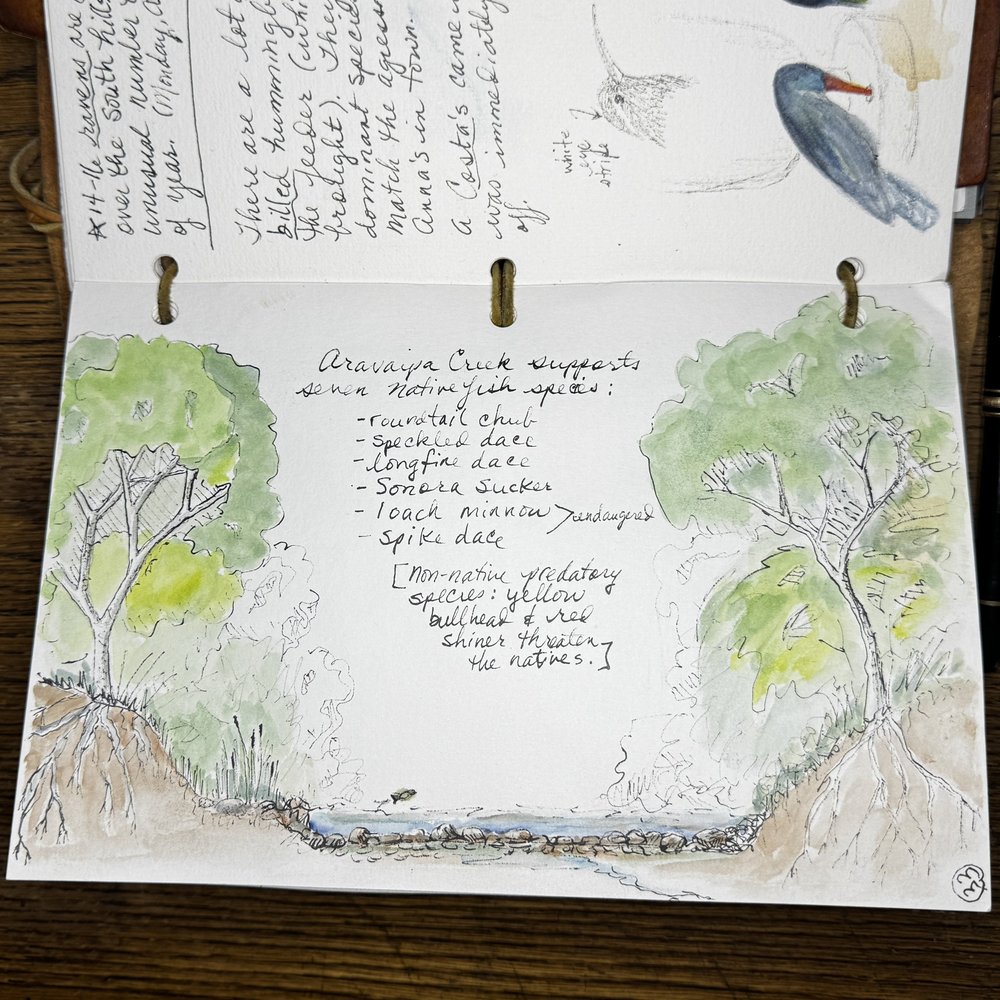 *14-16 ravens are
over the South hills
unusual number
of year. (Monday,
There are a lot
billed hummingb
the feeder (
brought). They
dominant speci
match the agress
Anna's in town.
a Costa's came
was immediately
off.
white
eye
stripe
Aravaipa Creek supports
seven native fish species:
- roundtail chub
- speckled dace
- longfine dace
- Sonora sucker
- loach minnow > endangered
- spike dace
[Non-native predatory
species: yellow
bullhead & red
shiner threaten
the natives.]